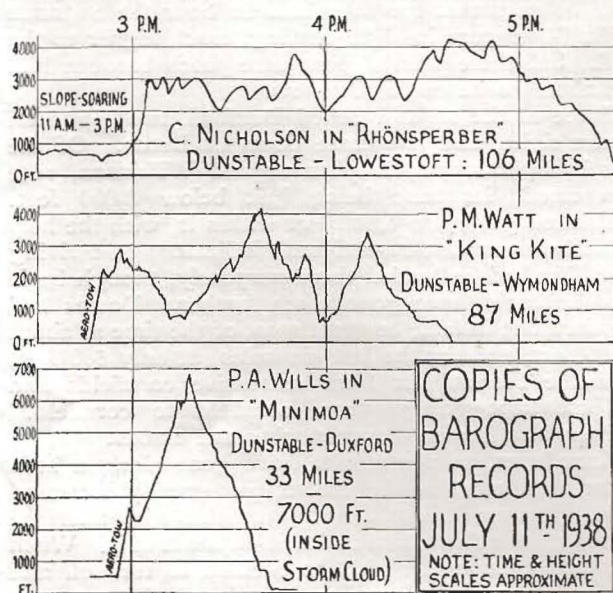 3 P.M. 4 P.M. 5 P.M.
4,000
3,000
2,000
1000
0 FT.
SLOPE-SOARING
11 A.M. – 3 P.M.
C. NICHOLSON IN "RHÖNSPERBER"
DUNSTABLE – LOWESTOFT : 106 MILES
4000
3000
2000
1000
0 FT.
AERO-TOW
P.M. WATT IN
"KING KITE"
DUNSTABLE – WYMONDHAM
87 MILES
7000
6000
5000
4000
3000
2000
1000
FT.
AERO-TOW
P.A. WILLS IN
"MINIMOA"
DUNSTABLE – DUXFORD
33 MILES
–
7000 FT.
(INSIDE
STORM CLOUD)
COPIES OF
BAROGRAPH
RECORDS
JULY 11TH 1938
NOTE: TIME & HEIGHT
SCALES APPROXIMATE